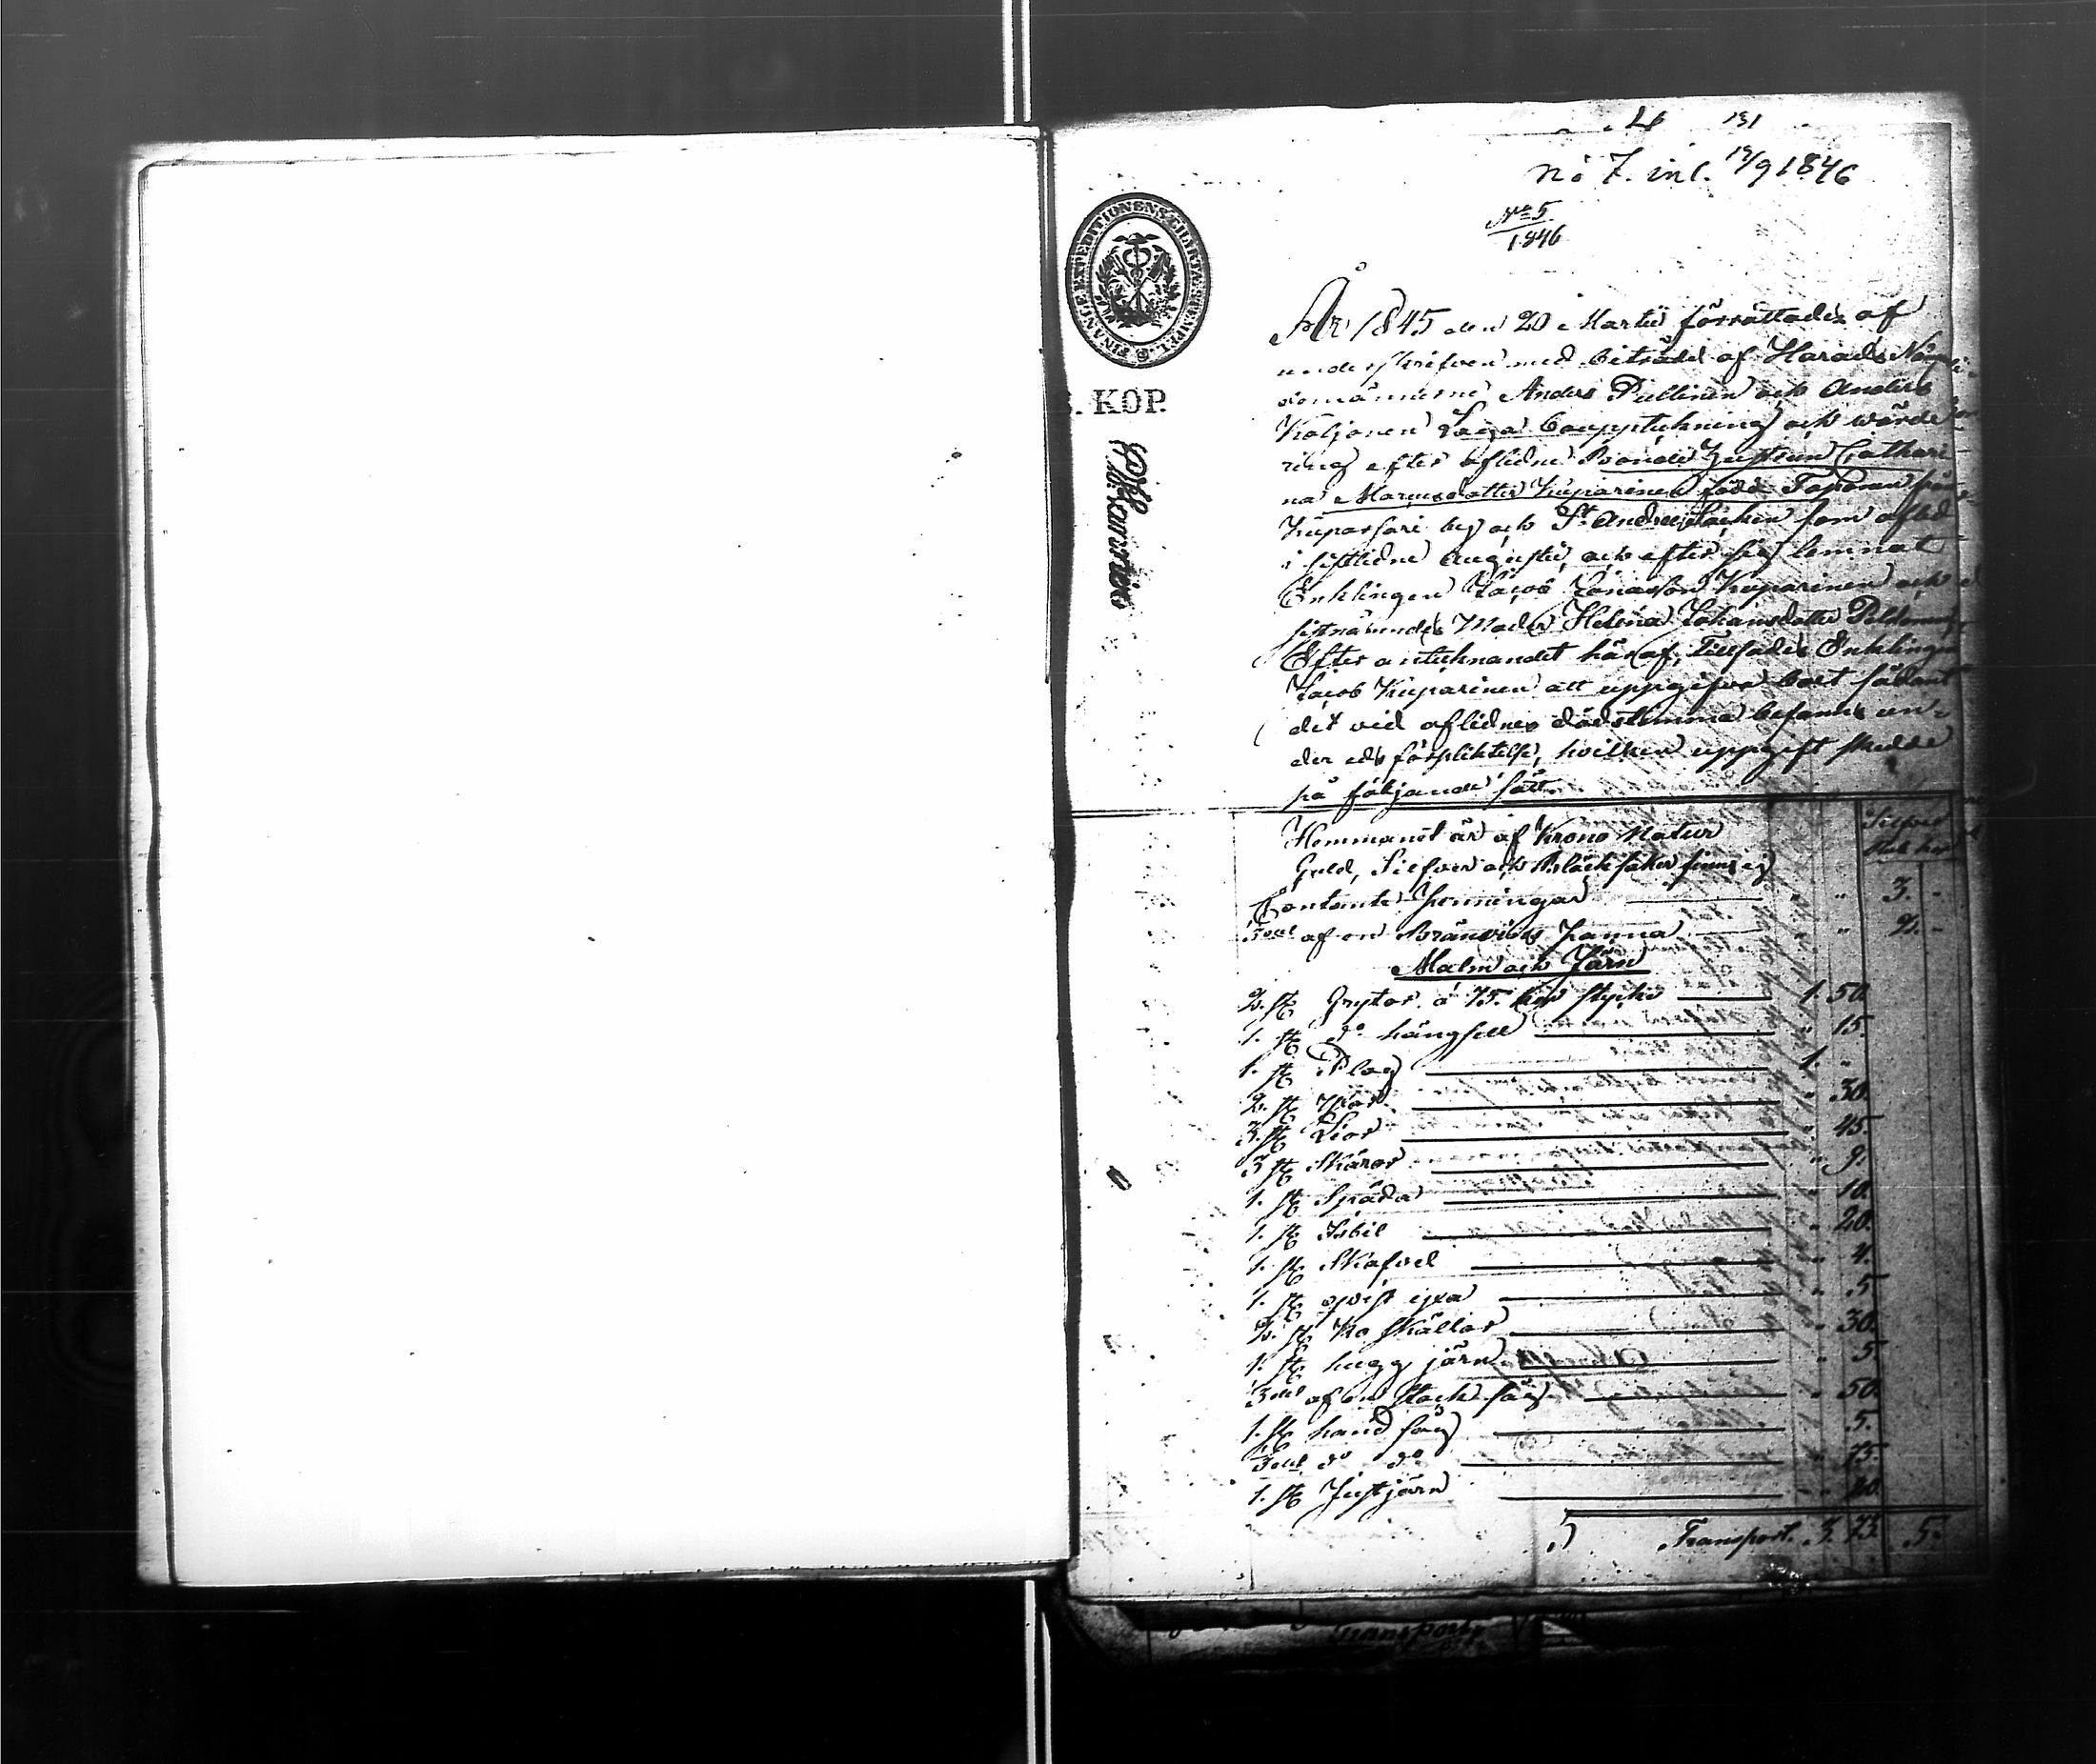 131
No 7. inl. 19/9 1846
No 5.
1846
FINANCE EXPEDITIONENS CHARTÆ STEMPEL
KOP.
År 1845 den 20 Martii förrättades af
underskrifven med biträde af Härads Nämn
demännerne Anders Pullinen och Anders
Koljonen Laga bouppteckning och värde
ring efter aflidne Bonde Hustrun Cathari
na Marcusdotter Kuparinen född Taponen från
Kuparsari by och St Andreæ Socken som afled
i sistledne Augusti, och efter sig lemnat
Enklingen Jacob Jonasson Kuparinen och
sistnämndes Moder Helena Johansdotter
Efter antecknandet häraf, Tillsades Enklingen
Jacob Kuparinen att uppgifva boet sådant
det vid aflidnes dödstimma befanns un-
der eds förpliktelse, hvilken uppgift skedde
på följande sätt
Silfver
Rub. kop
Hemmanet är af Krono Natur
Guld, Silfver och Bläck saker finns ej
Contante Penningar " " 3. -
af en Brännvins Panna " 2. -
Malm och Järn
2. st Grytor à 75. kop stycke 1. 50.
1. st do hängsell " 15.
1. st Plog 1. "
2. st " 30.
3. st Liar " 45.
3 st Skäror " 9.
1. st Spada " 10.
1. st Isbil " 20.
1. st Skafvel " 4.
1. st yxa " 5
2. st Ko skällor " 30.
1. st hugg järn " 5
af en stock såg " 50.
1. st hand såg " 5.
do do " 15.
1. st järn " 20.
Transport. 73. 5.
Transport